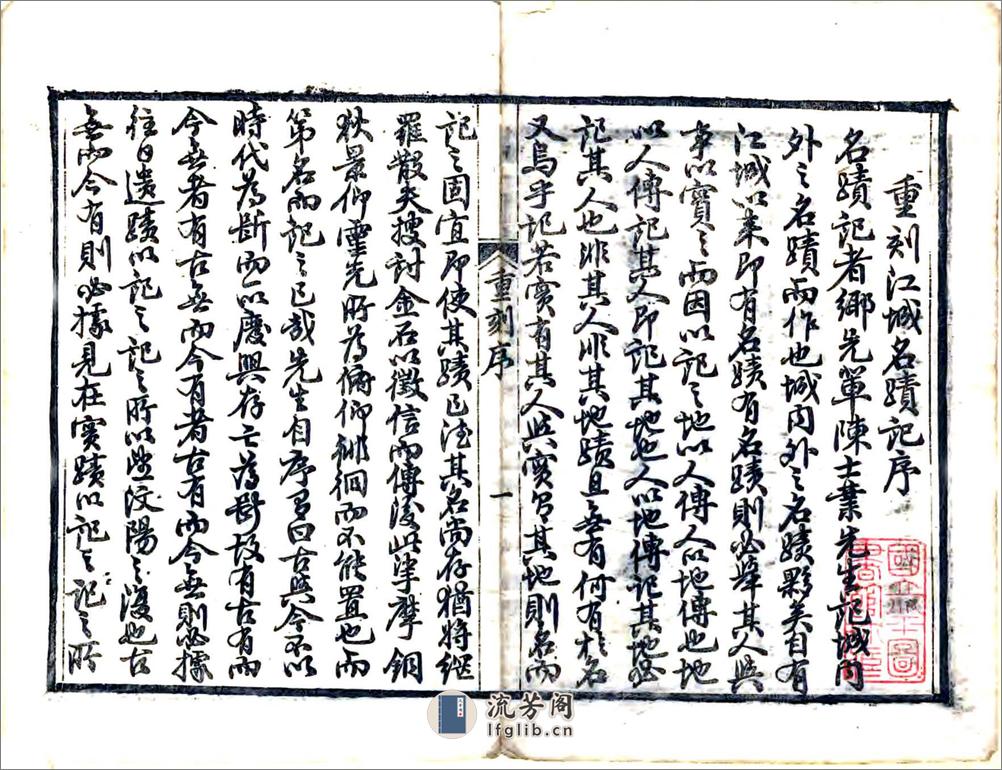 重刻江城名蹟記序
名蹟記者鄉先軰陳士業先生記城內
外之名蹟而作也城內外之名蹟夥矣自有
江城以来即有名蹟有名蹟則必舉其人與
事以實之而因以記之地以人傳人以地傳也地
以人傳記其人即記其地也人以地傳記其地必
記其人也非其人非其地蹟且無有何有於名
又烏乎記若實有其人與實有其地則名而
記之固宜即使其蹟已湮其名尚存猶將繼
羅散失搜討金石以徵信而傳後此摩銅
狄景仰靈光所為俯仰徘徊而不能置也而
第名而記之已哉先生自序有曰古與今不以
時代為斷而一以廢興存亡為斷故有古有而
今無者有古無而今有者古有而今無則必據
往日遺蹟以記之記之所以興汶陽之復也古
無而今有則必據見在實蹟以記之記之所
重刻序
一
流芳阁
lfglib.cn